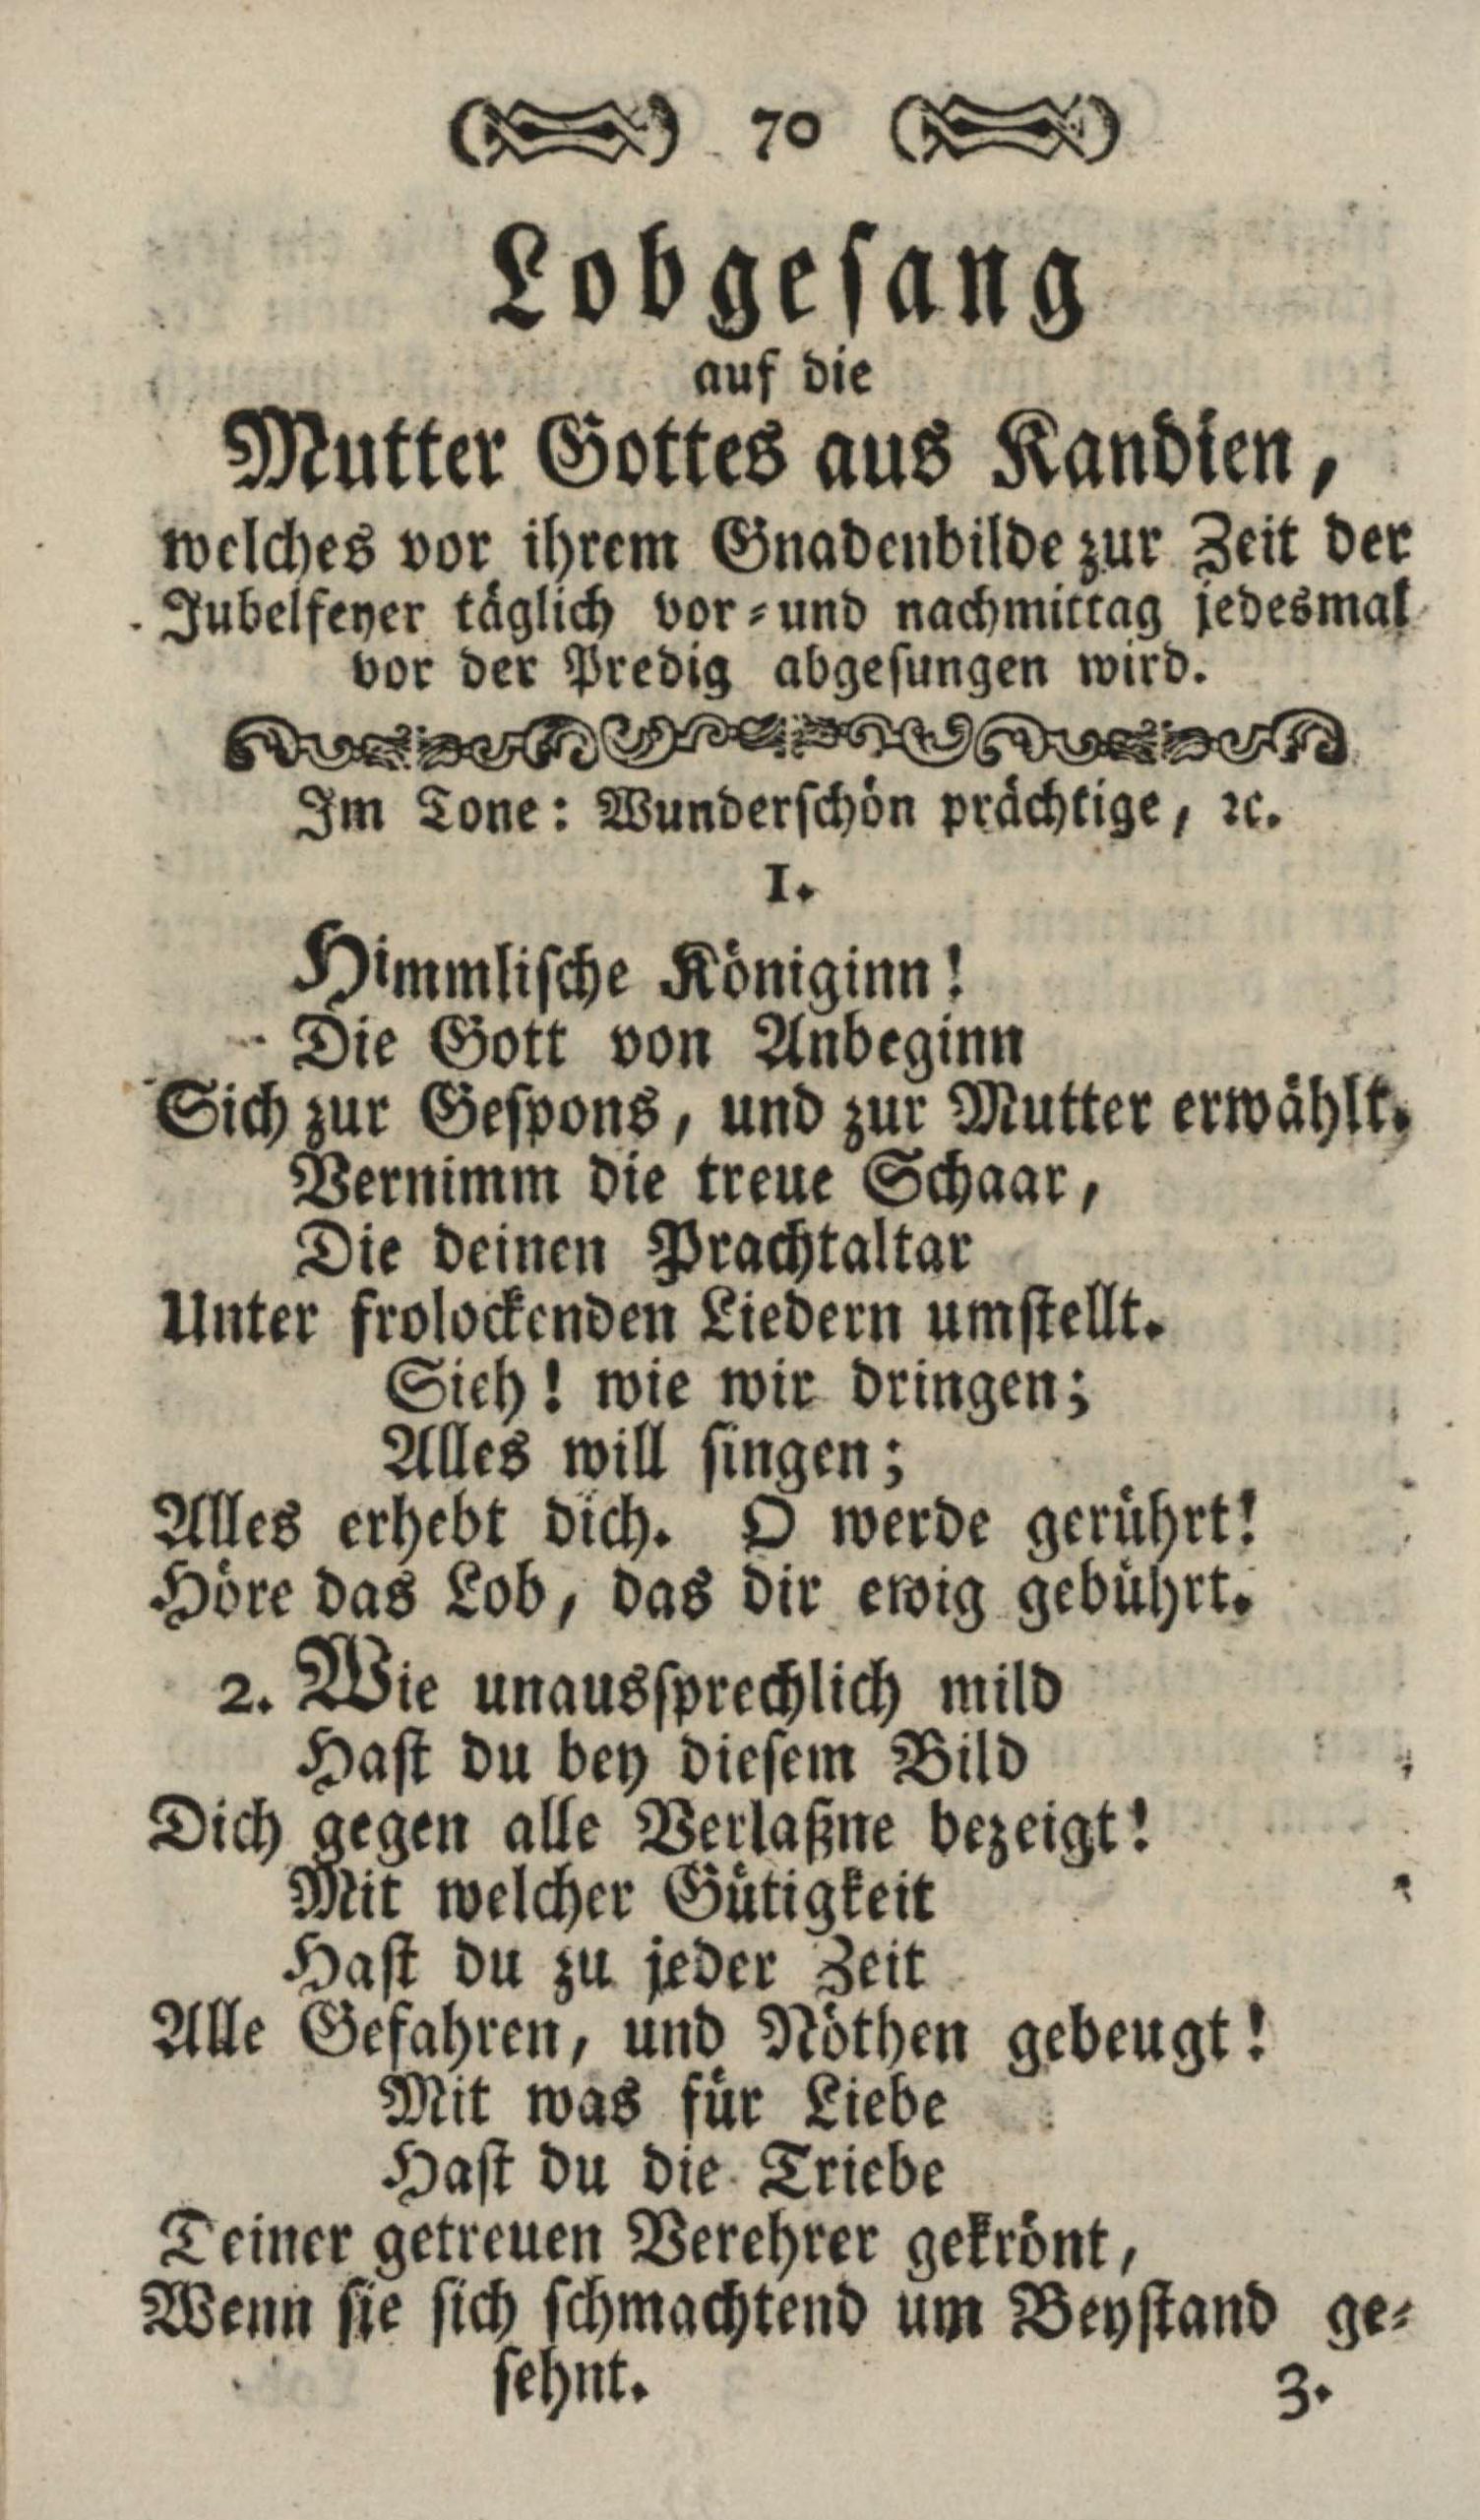 70
Lobgesang
auf die
Mutter Gottes aus Kandien,
welches vor ihrem Gnadenbilde zur Zeit der
Jubelfeyer täglich vor-und nachmittag jedesmal
vor der Predig abgesungen wird.
Im Tone: Wunderschön prächtige, ꝛc.
1.
Himmlische Königinn!
Die Gott von Anbeginn
Sich zur Gespons, und zur Mutter erwählt.
Vernimm die treue Schaar,
Die deinen Prachtaltar
Unter frolockenden Liedern umstellt.
Sieh! wie wir dringen;
Alles will singen;
Alles erhebt dich. O werde gerührt!
Höre das Lob, das dir ewig gebührt.
2. Wie unaussprechlich mild
Hast du bey diesem Bild
Dich gegen alle Verlaßne bezeigt!
Mit welcher Gütigkeit
Hast du zu jeder Zeit
Alle Gefahren, und Nöthen gebeugt!
Mit was für Liebe
Hast du die Triebe
Teiner getreuen Verehrer gekrönt,
Wenn sie sich schmachtend um Beystand ge-
sehnt.
3.